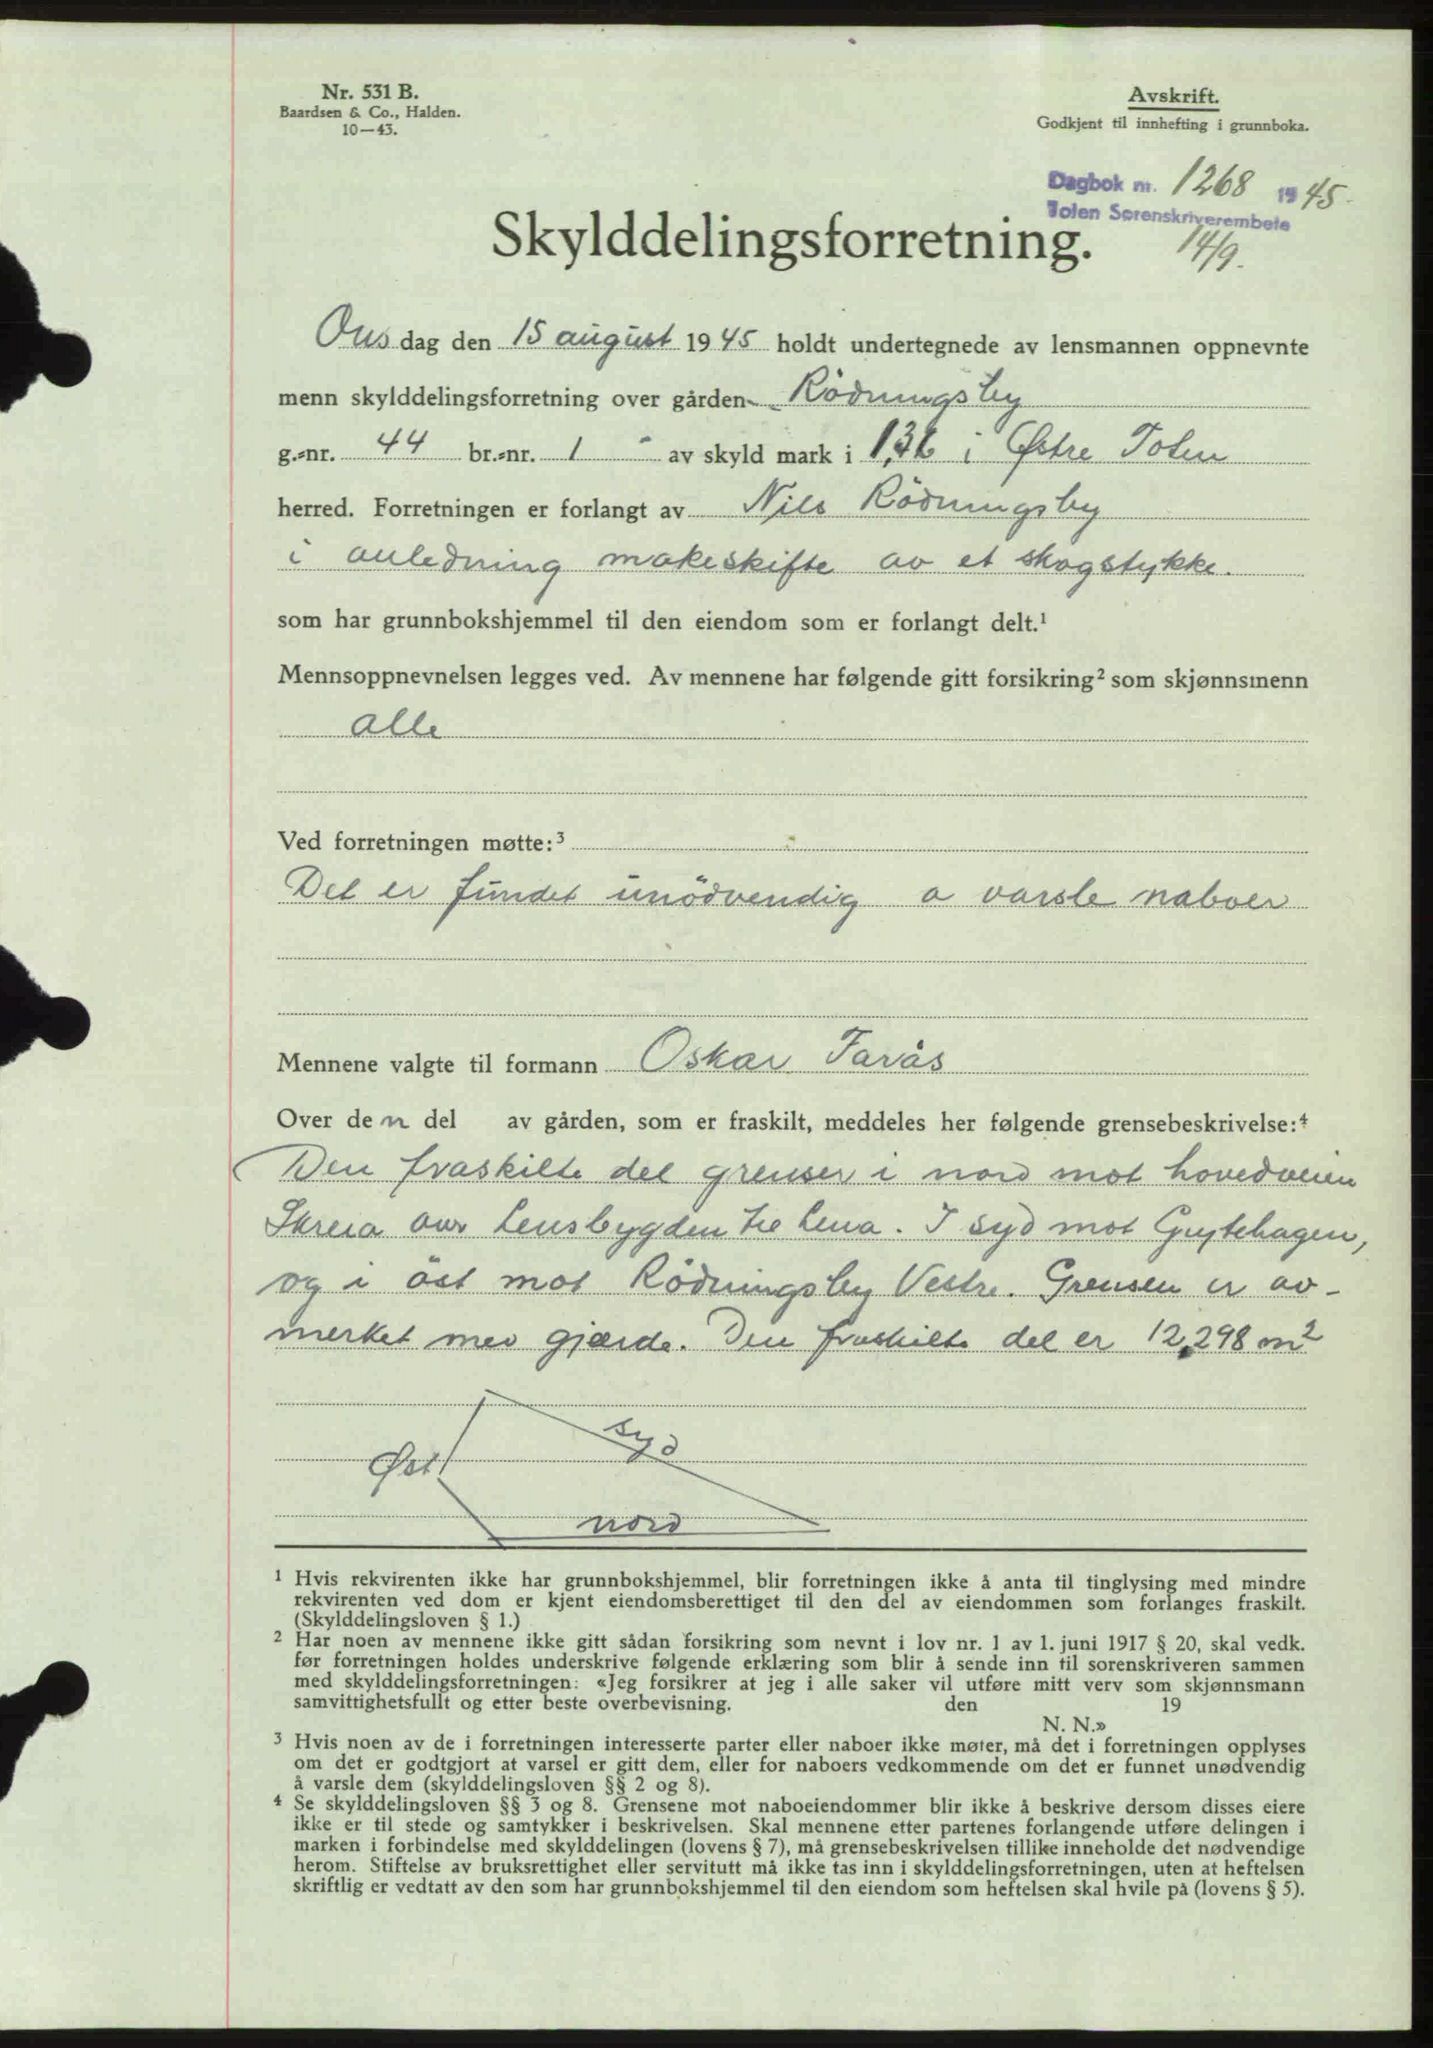 Nr. 531 B.
Baardsen & Co., Halden.
10—43.
Avskrift.
Godkjent til innhefting i grunnboka.
Dagbok nr. 1268 1945.
Toten Sorenskriverembete
14/9.
Skylddelingsforretning.
Onsdag den 15 august 1945 holdt undertegnede av lensmannen oppnevnte
menn skylddelingsforretning over gården Rödningsby
g.-nr. 44 br.-nr. 1 av skyld mark i Østre Toten
herred. Forretningen er forlangt av Nils Rödningsby
i anledning makeskifte av et skogstykke.
som har grunnbokshjemmel til den eiendom som er forlangt delt.¹
Mennsoppnevnelsen legges ved. Av mennene har følgende gitt forsikring² som skjønnsmenn
alle
Ved forretningen møtte:³
Det er fundet unödvendig a varsle naboer
Mennene valgte til formann Oskar Farås
Over den del av gården, som er fraskilt, meddeles her følgende grensebeskrivelse:⁴
Den fraskilte del grenser i nord mot hovedveien
Skreia over Lensbygden til Lena. I syd mot
og i öst mot Rödningsby Vestre. Grensen er av-
merket med gjærde. Den fraskilte del er 12,298 m²
syd
Øst
nord
¹ Hvis rekvirenten ikke har grunnbokshjemmel, blir forretningen ikke å anta til tinglysing med mindre
rekvirenten ved dom er kjent eiendomsberettiget til den del av eiendommen som forlanges fraskilt.
(Skylddelingsloven § 1.)
² Har noen av mennene ikke gitt sådan forsikring som nevnt i lov nr. 1 av 1. juni 1917 § 20, skal vedk.
før forretningen holdes underskrive følgende erklæring som blir å sende inn til sorenskriveren sammen
med skylddelingsforretningen: «Jeg forsikrer at jeg i alle saker vil utføre mitt verv som skjønnsmann
samvittighetsfullt og etter beste overbevisning. den 19
N. N.»
³ Hvis noen av de i forretningen interesserte parter eller naboer ikke møter, må det i forretningen opplyses
om det er godtgjort at varsel er gitt dem, eller for naboers vedkommende om det er funnet unødvendig
å varsle dem (skylddelingsloven §§ 2 og 8).
⁴ Se skylddelingsloven §§ 3 og 8. Grensene mot naboeiendommer blir ikke å beskrive dersom disses eiere
ikke er til stede og samtykker i beskrivelsen. Skal mennene etter partenes forlangende utføre delingen i
marken i forbindelse med skylddelingen (lovens § 7), må grensebeskrivelsen tillike inneholde det nødvendige
herom. Stiftelse av bruksrettighet eller servitutt må ikke tas inn i skylddelingsforretningen, uten at heftelsen
skriftlig er vedtatt av den som har grunnbokshjemmel til den eiendom som heftelsen skal hvile på (lovens § 5).